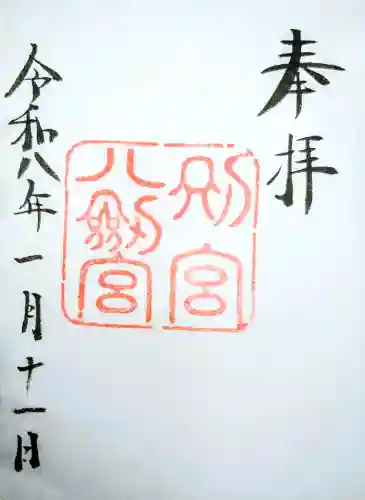 奉拝
別宮
八剱宮
令和八年一月十一日